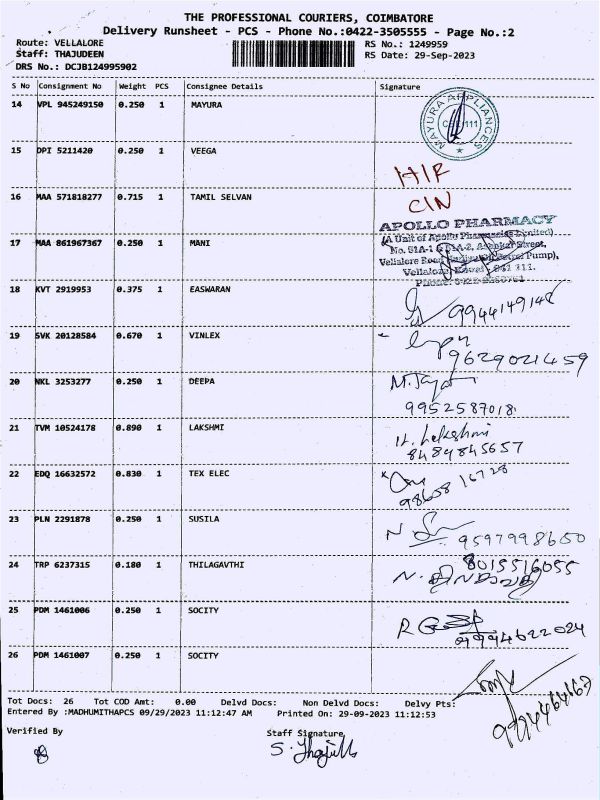 THE PROFESSIONAL COURIERS, COIMBATORE
Delivery Runsheet - PCS - Phone No.:0422-3505555 - Page No.:2
Route: VELLALORE RS No.: 1249959
Staff: THAJUDEEN RS Date: 29-Sep-2023
DRS No.: DCJB124995902
S No Consignment No Weight PCS Consignee Details Signature
14 VPL 945249150 0.250 1 MAYURA
MAYURA APPLIANCES
15 DPI 5211420 0.250 1 VEEGA
16 MAA 571818277 0.715 1 TAMIL SELVAN
CIN
APOLLO PHARMACY
(A Unit of Apollo Pharmacies Limited)
17 MAA 861967367 0.250 1 MANI
18 KVT 2919953 0.375 1 EASWARAN
9944149148
19 SVK 20128584 0.670 1 VINLEX
9629021459
20 NKL 3253277 0.250 1 DEEPA
9952587018
21 TVM 10524178 0.890 1 LAKSHMI
Lakshmi
8489845657
22 EDQ 16632572 0.830 1 TEX ELEC
9865816728
23 PLN 2291878 0.250 1 SUSILA
9597998650
24 TRP 6237315 0.180 1 THILAGAVTHI
8015516055
25 PDM 1461006 0.250 1 SOCITY
9994622024
26 PDM 1461007 0.250 1 SOCITY
Tot Docs: 26 Tot COD Amt: 0.00 Delvd Docs: Non Delvd Docs: Delvy Pts:
Entered By :MADHUMITHAPCS 09/29/2023 11:12:47 AM Printed On: 29-09-2023 11:12:53
Verified By Staff Signature